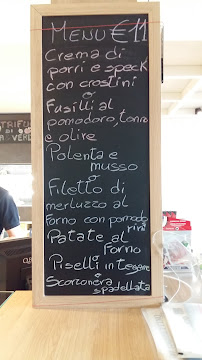 MENU €11
Crema di
porri e speck
con crostini
o
Fusilli al
pomodoro, tonno
e olive
Polenta e
musso
o
Filetto di
merluzzo al
forno con pomodo
rini
Patate al
Forno
Piselli in tegame
Scorzonera
spadellata